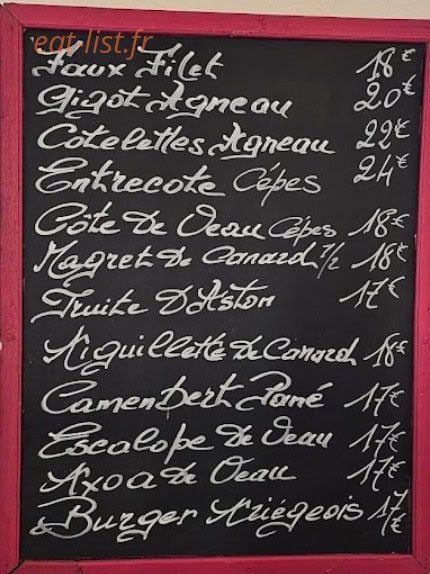 eat-list.fr
Faux Filet 18€
Gigot Agneau 20€
Cotelettes Agneau 22€
Entrecote Cépes 24€
Côte De Veau Cépes 18€
Magret De Canard 1/2 18€
Truite D'Aston 17€
Aiguillette De Canard 18€
Camembert Pané 17€
Escalope De Veau 17€
Axoa De Veau 17€
Burger Ariégeois 17€